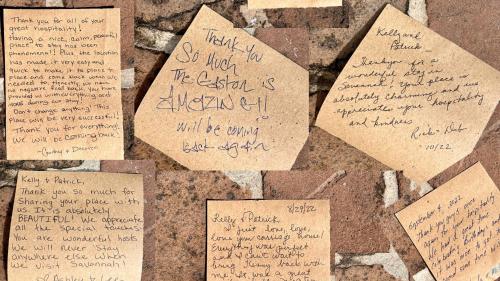 Thank you for all of your
great hospitality!
Having a nice, calm, peaceful
place to stay has been
phenomenal!! Plus the location
has made it very easy and
quick to make it to places
no negative feed back, you have
provided us with everything and
more during our stay!
Don't change anything! This
place will be very successful!
Thank you for everything!
We will be coming back
Thank You
So Much
The Gaston is
AMAZING!!
will be coming
Back again
Kelly and
Patrick -
Thank you for a
wonderful stay in
Savannah! Your place is
absolutely charming and we
appreciate your hospitality
and kindness
10/22
Kelly & Patrick,
Thank you so much for
Sharing your place with
us. It is absolutely
BEAUTIFUL! We appreciate
all the special touches.
You are wonderful hosts
We will never stay
anywhere else when
we visit Savannah!
Ashley & Lee
8/29/22
Kelly & Patrick
I just love, love,
love your carriage home!
Everything was perfect
and I can't wait to
bring back with
me. It was a great
September 9, 2022